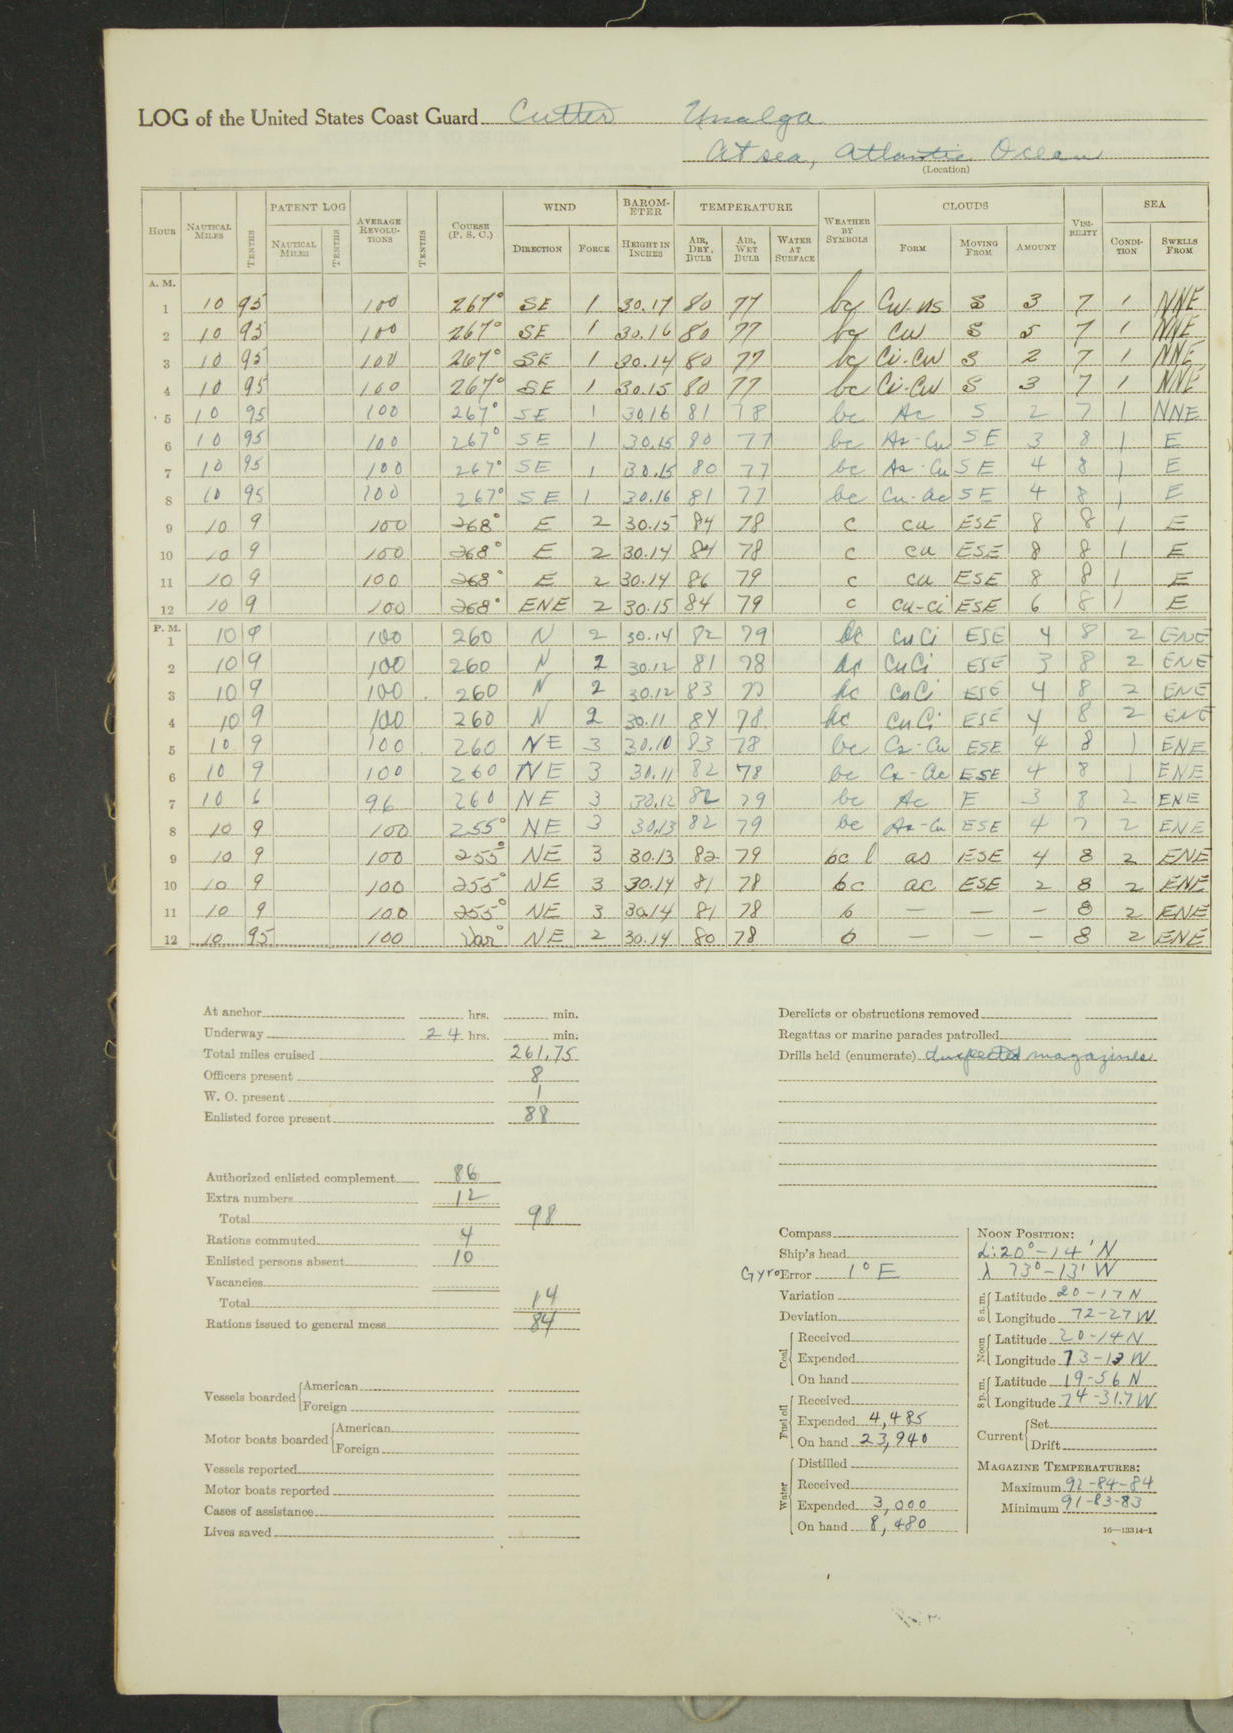 LOG of the United States Coast Guard Cutter Unalga
At sea, Atlantic Ocean
(Location)
HOUR NAUTICAL MILES TENTHS PATENT LOG NAUTICAL MILES TENTHS AVERAGE REVOLUTIONS TENTHS COURSE (P. S. C.) WIND DIRECTION FORCE BAROMETER HEIGHT IN INCHES TEMPERATURE AIR, DRY, BULB AIR, WET BULB WATER AT SURFACE WEATHER BY SYMBOLS CLOUDS FORM MOVING FROM AMOUNT VISIBILITY SEA CONDITION SWELLS FROM
A. M.
1 10 95 100 267° SE 1 30.17 80 77 bc Cu-ns S 3 7 1 NNE
2 10 95 100 267° SE 1 30.16 80 77 bc Cu S 5 7 1 NNE
3 10 95 100 267° SE 1 30.14 80 77 bc Ci-Cu S 2 7 1 NNE
4 10 95 100 267° SE 1 30.15 80 77 bc Ci-Cu S 3 7 1 NNE
5 10 95 100 267° SE 1 30.16 81 78 bc Ac S 2 7 1 NNE
6 10 95 100 267° SE 1 30.15 80 77 bc As-Cu SE 3 8 1 E
7 10 95 100 267° SE 1 30.15 80 77 bc As-Cu SE 4 8 1 E
8 10 95 100 267° SE 1 30.16 81 77 bc Cu-ac SE 4 8 1 E
9 10 9 100 268° E 2 30.15 84 78 c cu ESE 8 8 1 E
10 10 9 100 268° E 2 30.14 84 78 c cu ESE 8 8 1 E
11 10 9 100 268° E 2 30.14 86 79 c cu ESE 8 8 1 E
12 10 9 100 268° ENE 2 30.15 84 79 c cu-ci ESE 6 8 1 E
P. M.
1 10 9 100 260 N 2 30.14 82 79 bc CuCi ESE 4 8 2 ENE
2 10 9 100 260 N 2 30.12 81 78 bc CuCi ESE 3 8 2 ENE
3 10 9 100 260 N 2 30.12 83 77 bc CuCi ESE 4 8 2 ENE
4 10 9 100 260 N 2 30.11 84 78 bc CuCi ESE 4 8 2 ENE
5 10 9 100 260 NE 3 30.10 83 78 bc Cs-Cu ESE 4 8 1 ENE
6 10 9 100 260 NE 3 30.11 82 78 bc Cs-Ac ESE 4 8 1 ENE
7 10 6 96 260 NE 3 30.12 82 79 bc Ac E 3 8 2 ENE
8 10 9 100 255° NE 3 30.13 82 79 bc As-Cu ESE 4 7 2 ENE
9 10 9 100 255° NE 3 30.13 82 79 bc l as ESE 4 8 2 ENE
10 10 9 100 255° NE 3 30.14 81 78 bc ac ESE 2 8 2 ENE
11 10 9 100 255° NE 3 30.14 81 78 b — — — 8 2 ENE
12 10 95 100 Var° NE 2 30.14 80 78 b — — — 8 2 ENE
At anchor hrs. min.
Underway 24 hrs. min.
Total miles cruised 261.75
Officers present 8
W. O. present 1
Enlisted force present 88
Authorized enlisted complement 86
Extra numbers 12
Total 98
Rations commuted 4
Enlisted persons absent 10
Vacancies
Total 14
Rations issued to general mess 84
Vessels boarded American
Foreign
Motor boats boarded American
Foreign
Vessels reported
Motor boats reported
Cases of assistance
Lives saved
Derelicts or obstructions removed
Regattas or marine parades patrolled
Drills held (enumerate) Inspected magazines
Compass
Ship's head
Gyro Error 1° E
Variation
Deviation
Coal Received
Expended
On hand
Fuel oil Received
Expended 4,485
On hand 23,940
Water Distilled
Received
Expended 3,000
On hand 8,480
NOON POSITION:
L: 20°-14' N
λ 73°-13' W
8 a.m. Latitude 20-17 N
Longitude 72-27 W
Noon Latitude 20-14 N
Longitude 73-13 W
8 p.m. Latitude 19-56 N
Longitude 74-31.7 W
Current Set
Drift
MAGAZINE TEMPERATURES:
Maximum 92-84-84
Minimum 91-83-83
16—13314-1